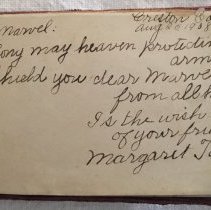 Creston Ca
Aug 20 1938
Marvel:
Long may heaven protecting
arm
shield you dear Marvel
from all h
Is the wish
of your frie
Margaret T